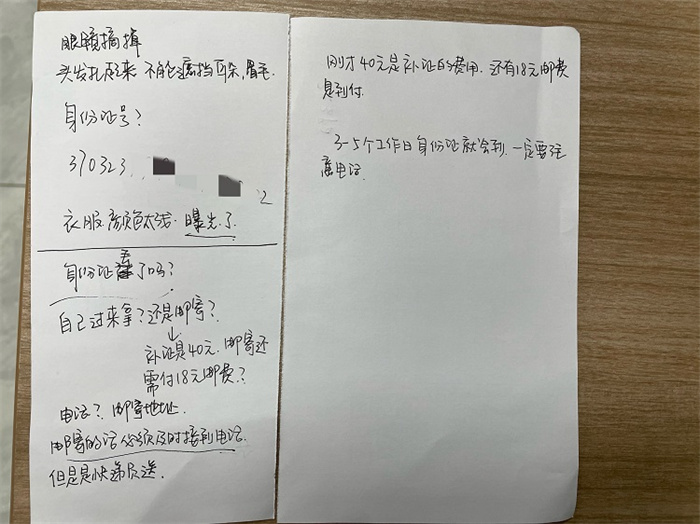 眼镜摘掉
头发扎起来 不能遮挡耳朵,眉毛.
身份证号?
370323
2
衣服颜色太浅.曝光了
身份证丢了吗?
自己过来拿?还是邮寄?
↓
补证是40元.邮寄还
需付18元邮费?
电话?邮寄地址.
邮寄的话必须及时接到电话.
但是是快递员送.
刚才40元是补证的费用.还有18元邮费
是到付.
3-5个工作日身份证就会到.一定要注
意电话.